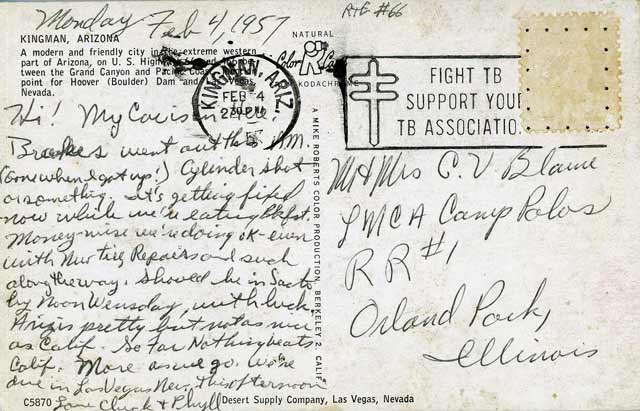 Monday Feb 4, 1957
RTE #66
KINGMAN, ARIZONA
A modern and friendly city in the extreme western
part of Arizona, on U. S. High
tween the Grand Canyon and Pacific Coast
point for Hoover (Boulder) Dam and Las Vegas,
Nevada.
NATURAL
Color
KODACHROME
KINGMAN, ARIZ.
FEB 4
2 30 PM
1957
FIGHT TB
SUPPORT YOUR
TB ASSOCIATIO
Hi! My Cousin
Brakes went out this A.M.
(Gone when I got up!) Cylinder shot
or something. It's getting fixed
now while we're eating Bkfst.
Money-wise we're doing ok-even
with New Tire, Repairs and such
along the way. Should be in Sacto
by Noon Wensday, with luck.
Ariz is pretty but not as nice
as Calif. So Far Nothing beats
Calif. More as we go. We're
due in Las Vegas Nev. This afternoon
Love Chuck & Phyll
A MIKE ROBERTS COLOR PRODUCTION, BERKELEY 2, CALIF.
M+Mrs C. V Blaine
YMCA Camp Palos
RR #1
Orland Park,
Illinois
C5870 Desert Supply Company, Las Vegas, Nevada